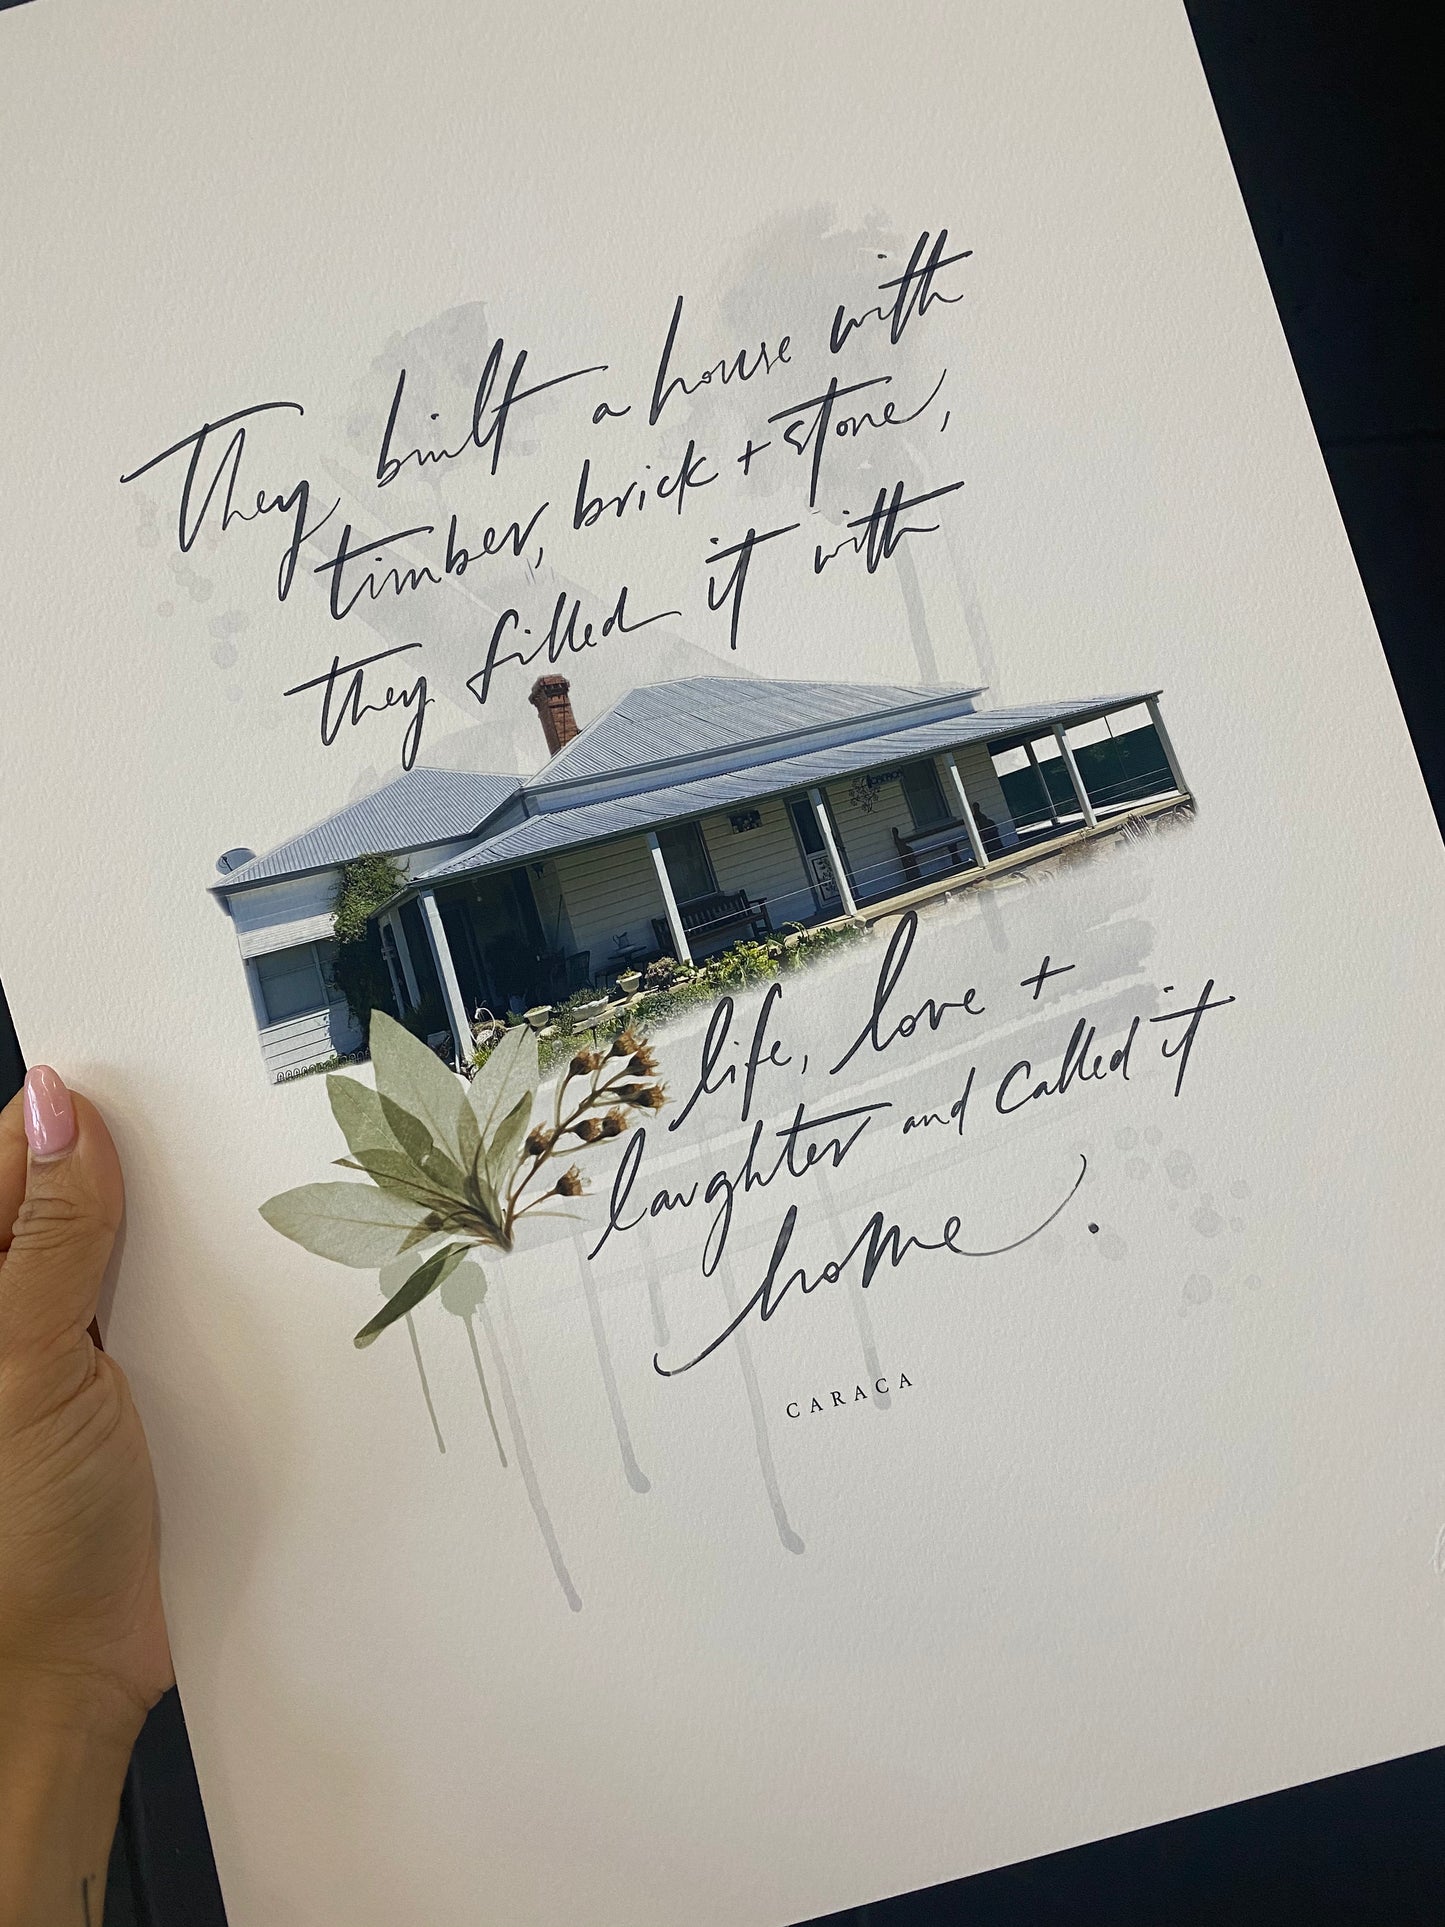 They built a house with
timber, brick + stone,
they filled it with
life, love +
laughter and called it
home.
CARACA